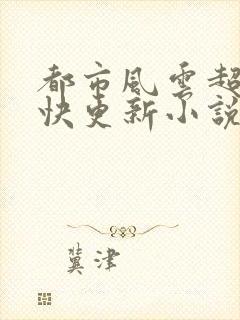 都市風雲超
快更新小說
冀津